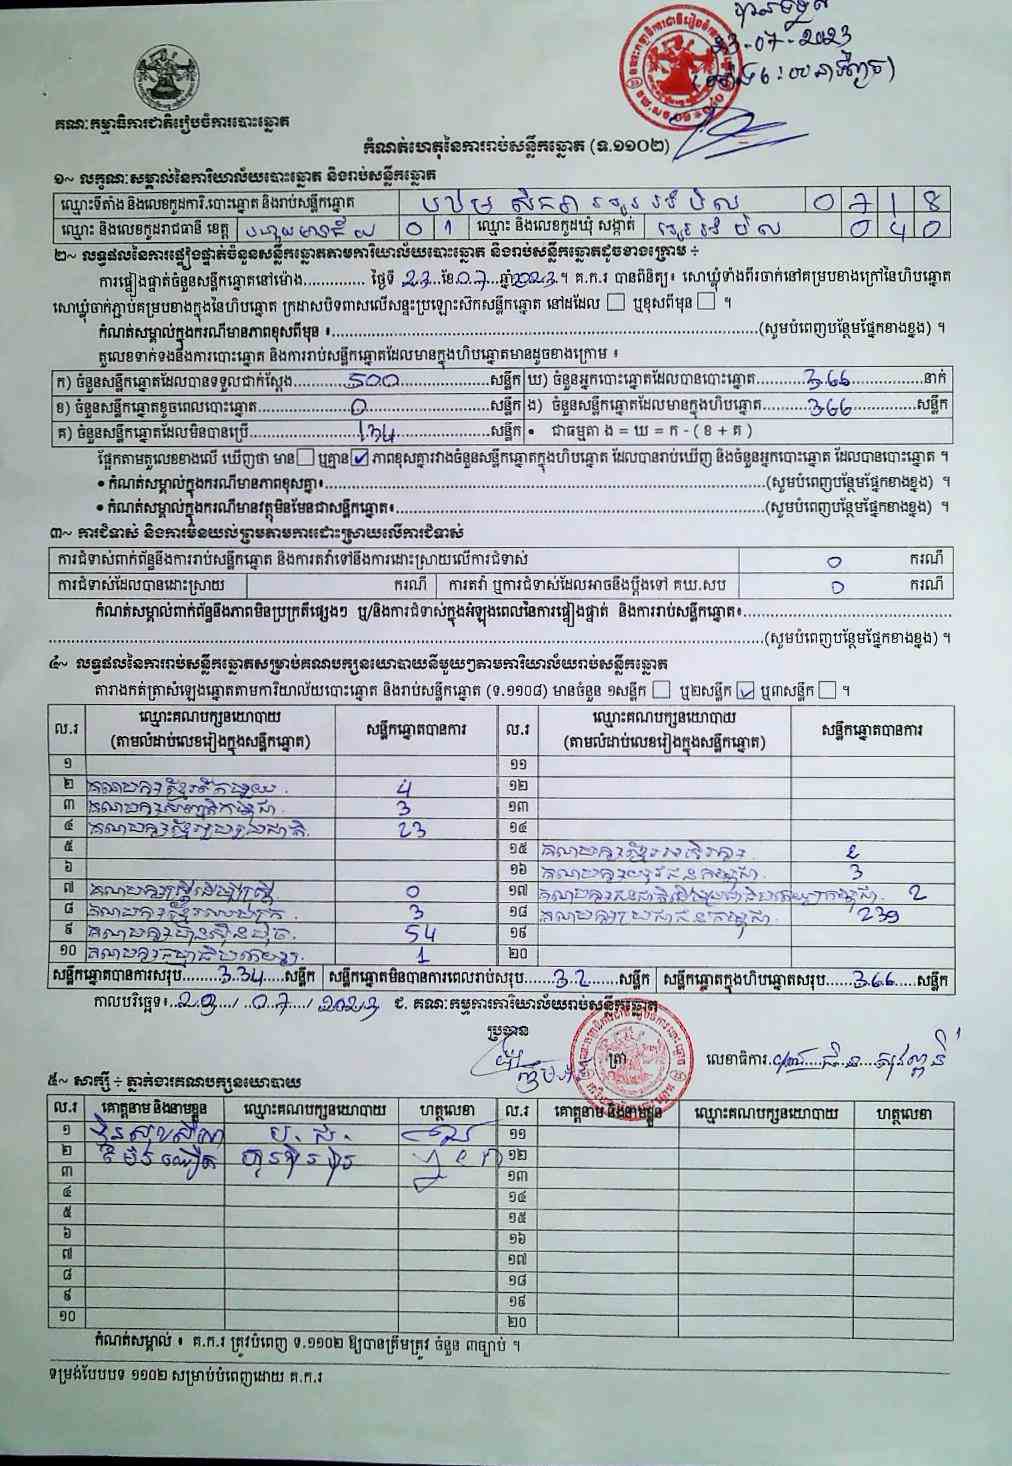 បានទទួល
23-07-2023
គណៈកម្មាធិការជាតិរៀបចំការបោះឆ្នោត
កំណត់ហេតុនៃការរាប់សន្លឹកឆ្នោត (ទ.១១០២)
១~ លក្ខណៈសម្គាល់នៃការិយាល័យបោះឆ្នោត និងរាប់សន្លឹកឆ្នោត
ឈ្មោះទីតាំង និងលេខកូដការិ.បោះឆ្នោត និងរាប់សន្លឹកឆ្នោត 0 7 1 8
ឈ្មោះ និងលេខកូដរាជធានី ខេត្ត បន្ទាយមានជ័យ 0 1 ឈ្មោះ និងលេខកូដឃុំ សង្កាត់ 0 4 0
២~ លទ្ធផលនៃការផ្ទៀងផ្ទាត់ចំនួនសន្លឹកឆ្នោតតាមការិយាល័យបោះឆ្នោត និងរាប់សន្លឹកឆ្នោតដូចខាងក្រោម ÷
ការផ្ទៀងផ្ទាត់ចំនួនសន្លឹកឆ្នោតនៅម៉ោង.............. ថ្ងៃទី 23...ខែ.07...ឆ្នាំ2023។ គ.ក.រ បានពិនិត្យ៖ សោឃ្លុំទាំងពីរចាក់នៅគម្របខាងក្រៅនៃហិបឆ្នោត
សោឃ្លុំចាក់ភ្ជាប់គម្របខាងក្នុងនៃហិបឆ្នោត ក្រដាសបិទពាសលើសន្ទះប្រឡោះស៊កសន្លឹកឆ្នោត នៅដដែល ☐ ឬខុសពីមុន ☐ ។
កំណត់សម្គាល់ក្នុងករណីមានភាពខុសពីមុន ៖.....(សូមបំពេញបន្ថែមផ្នែកខាងខ្នង) ។
តួលេខទាក់ទងនឹងការបោះឆ្នោត និងការរាប់សន្លឹកឆ្នោតដែលមានក្នុងហិបឆ្នោតមានដូចខាងក្រោម ៖
ក) ចំនួនសន្លឹកឆ្នោតដែលបានទទួលជាក់ស្តែង......500......សន្លឹក ឃ) ចំនួនអ្នកបោះឆ្នោតដែលបានបោះឆ្នោត......366......នាក់
ខ) ចំនួនសន្លឹកឆ្នោតខូចពេលបោះឆ្នោត......0......សន្លឹក ង) ចំនួនសន្លឹកឆ្នោតដែលមានក្នុងហិបឆ្នោត......366......សន្លឹក
គ) ចំនួនសន្លឹកឆ្នោតដែលមិនបានប្រើ......134......សន្លឹក • ជាធម្មតា ង = ឃ = ក - ( ខ + គ )
ផ្អែកតាមតួលេខខាងលើ ឃើញថា មាន ☐ ឬគ្មាន ☑ ភាពខុសគ្នារវាងចំនួនសន្លឹកឆ្នោតក្នុងហិបឆ្នោត ដែលបានរាប់ឃើញ និងចំនួនអ្នកបោះឆ្នោត ដែលបានបោះឆ្នោត ។
• កំណត់សម្គាល់ក្នុងករណីមានភាពខុសគ្នា៖.....(សូមបំពេញបន្ថែមផ្នែកខាងខ្នង) ។
• កំណត់សម្គាល់ក្នុងករណីមានវត្ថុមិនមែនជាសន្លឹកឆ្នោត៖.....(សូមបំពេញបន្ថែមផ្នែកខាងខ្នង) ។
៣~ ការជំទាស់ និងការមិនយល់ព្រមតាមការដោះស្រាយលើការជំទាស់
ការជំទាស់ពាក់ព័ន្ធនឹងការរាប់សន្លឹកឆ្នោត និងការតវ៉ាទៅនឹងការដោះស្រាយលើការជំទាស់ 0 ករណី
ការជំទាស់ដែលបានដោះស្រាយ ករណី ការតវ៉ា ឬការជំទាស់ដែលអាចនឹងប្តឹងទៅ គឃ.សប 0 ករណី
កំណត់សម្គាល់ពាក់ព័ន្ធនឹងភាពមិនប្រក្រតីផ្សេងៗ ឬ/និងការជំទាស់ក្នុងអំឡុងពេលនៃការផ្ទៀងផ្ទាត់ និងការរាប់សន្លឹកឆ្នោត៖.....
.....(សូមបំពេញបន្ថែមផ្នែកខាងខ្នង) ។
៤~ លទ្ធផលនៃការរាប់សន្លឹកឆ្នោតសម្រាប់គណបក្សនយោបាយនីមួយៗតាមការិយាល័យរាប់សន្លឹកឆ្នោត
តារាងកត់ត្រាសំឡេងឆ្នោតតាមការិយាល័យបោះឆ្នោត និងរាប់សន្លឹកឆ្នោត (ទ.១១០៨) មានចំនួន ១សន្លឹក ☐ ឬ២សន្លឹក ☑ ឬ៣សន្លឹក ☐ ។
ល.រ ឈ្មោះគណបក្សនយោបាយ (តាមលំដាប់លេខរៀងក្នុងសន្លឹកឆ្នោត) សន្លឹកឆ្នោតបានការ ល.រ ឈ្មោះគណបក្សនយោបាយ (តាមលំដាប់លេខរៀងក្នុងសន្លឹកឆ្នោត) សន្លឹកឆ្នោតបានការ
១ ១១
២ គណបក្សខ្មែរតែមួយ 4 ១២
៣ គណបក្សសញ្ជាតិកម្ពុជា 3 ១៣
៤ គណបក្សខ្មែររួបរួមជាតិ 23 ១៤
៥ ១៥ គណបក្សខ្មែរអភិរក្ស 2
៦ ១៦ គណបក្សយុវជនកម្ពុជា 3
៧ គណបក្សស្ត្រីដើម្បីស្ត្រី 0 ១៧ 2
៨ 3 ១៨ គណបក្សប្រជាជនកម្ពុជា 239
៩ គណបក្សហ៊្វុនស៊ិនប៉ិច 54 ១៩
១០ គណបក្សធម្មាធិបតេយ្យ 1 ២០
សន្លឹកឆ្នោតបានការសរុប......334......សន្លឹក សន្លឹកឆ្នោតមិនបានការពេលរាប់សរុប......32......សន្លឹក សន្លឹកឆ្នោតក្នុងហិបឆ្នោតសរុប......366......សន្លឹក
កាលបរិច្ឆេទ៖..23../..07../..2023 ជ. គណៈកម្មការការិយាល័យរាប់សន្លឹកឆ្នោត
ប្រធាន ត្រា លេខាធិការ
៥~ សាក្សី ÷ ភ្នាក់ងារគណបក្សនយោបាយ
ល.រ គោត្តនាម និងនាមខ្លួន ឈ្មោះគណបក្សនយោបាយ ហត្ថលេខា ល.រ គោត្តនាម និងនាមខ្លួន ឈ្មោះគណបក្សនយោបាយ ហត្ថលេខា
១ ប.ជ. ១១
២ ១២
៣ ១៣
៤ ១៤
៥ ១៥
៦ ១៦
៧ ១៧
៨ ១៨
៩ ១៩
១០ ២០
កំណត់សម្គាល់ ៖ គ.ក.រ ត្រូវបំពេញ ទ.១១០២ ឱ្យបានត្រឹមត្រូវ ចំនួន ៣ច្បាប់ ។
ទម្រង់បែបបទ ១១០២ សម្រាប់បំពេញដោយ គ.ក.រ